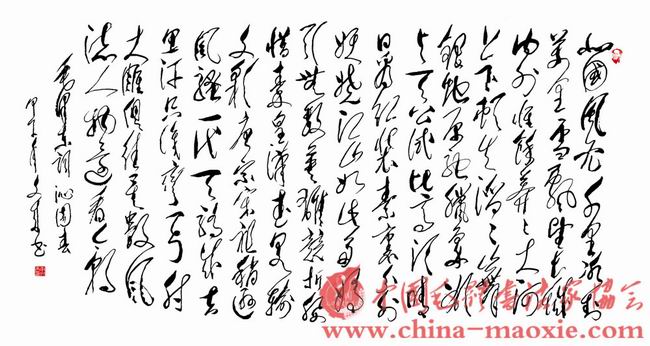 北国风光千里冰封
万里雪飘望长城
内外惟馀莽莽大河
上下顿失滔滔山舞
银蛇原驰蜡象欲
与天公试比高须晴
日看红装素裹分外
妖娆江山如此多娇
引无数英雄竞折腰
惜秦皇汉武略输
文彩唐宗宋祖稍逊
风骚一代天骄成吉
思汗只识弯弓射
大雕俱往矣数风
流人物还看今朝
毛泽东词沁园春
中国毛体书法家协会
www.china-maoxie.com